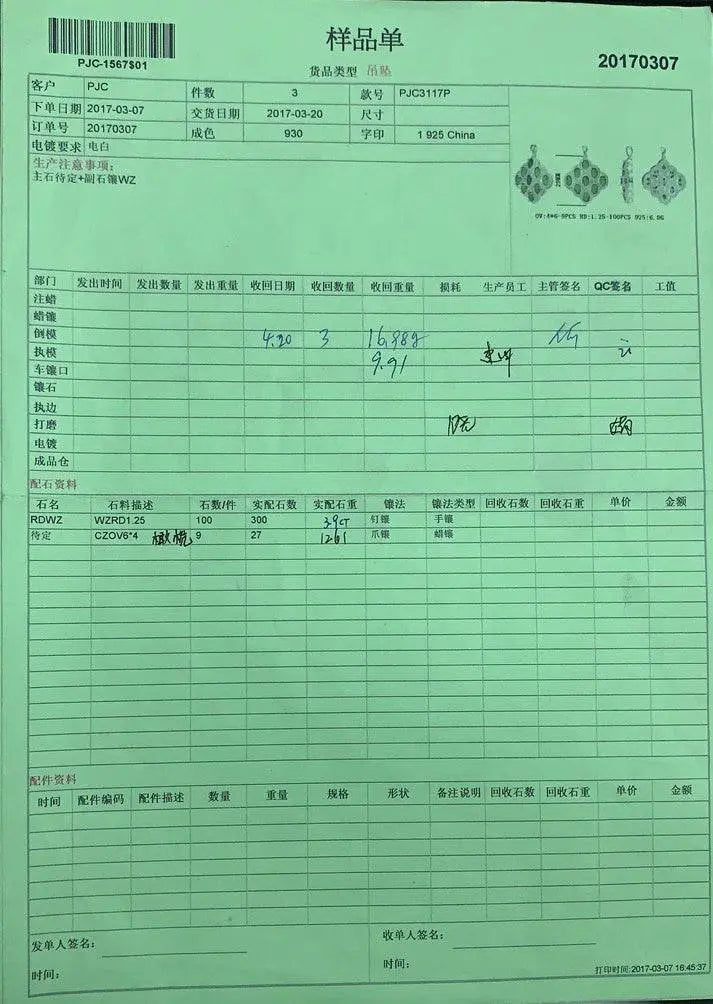 样品单
PJC-1567$01
货品类型 吊坠
20170307
客户 PJC 件数 3 款号 PJC3117P
下单日期 2017-03-07 交货日期 2017-03-20 尺寸
订单号 20170307 成色 930 字印 1 925 China
电镀要求 电白
生产注意事项:
主石待定+副石镶WZ
OV:4*6-9PCS RD:1.25-100PCS 925:6.0G
部门 发出时间 发出数量 发出重量 收回日期 收回数量 收回重量 损耗 生产员工 主管签名 QC签名 工值
注蜡
蜡镶
倒模 4.20 3
执模 9.91
车镶口
镶石
执边
打磨
电镀
成品仓
配石资料
石名 石料描述 石数/件 实配石数 实配石重 镶法 镶法类型 回收石数 回收石重 单价 金额
RDWZ WZRD1.25 100 300 3.9CT 钉镶 手镶
待定 CZOV6*4 橄榄 9 27 爪镶 蜡镶
配件资料
时间 配件编码 配件描述 数量 重量 规格 形状 备注说明 回收石数 回收石重 单价 金额
发单人签名: 收单人签名:
时间: 时间:
打印时间:2017-03-07 16:45:37